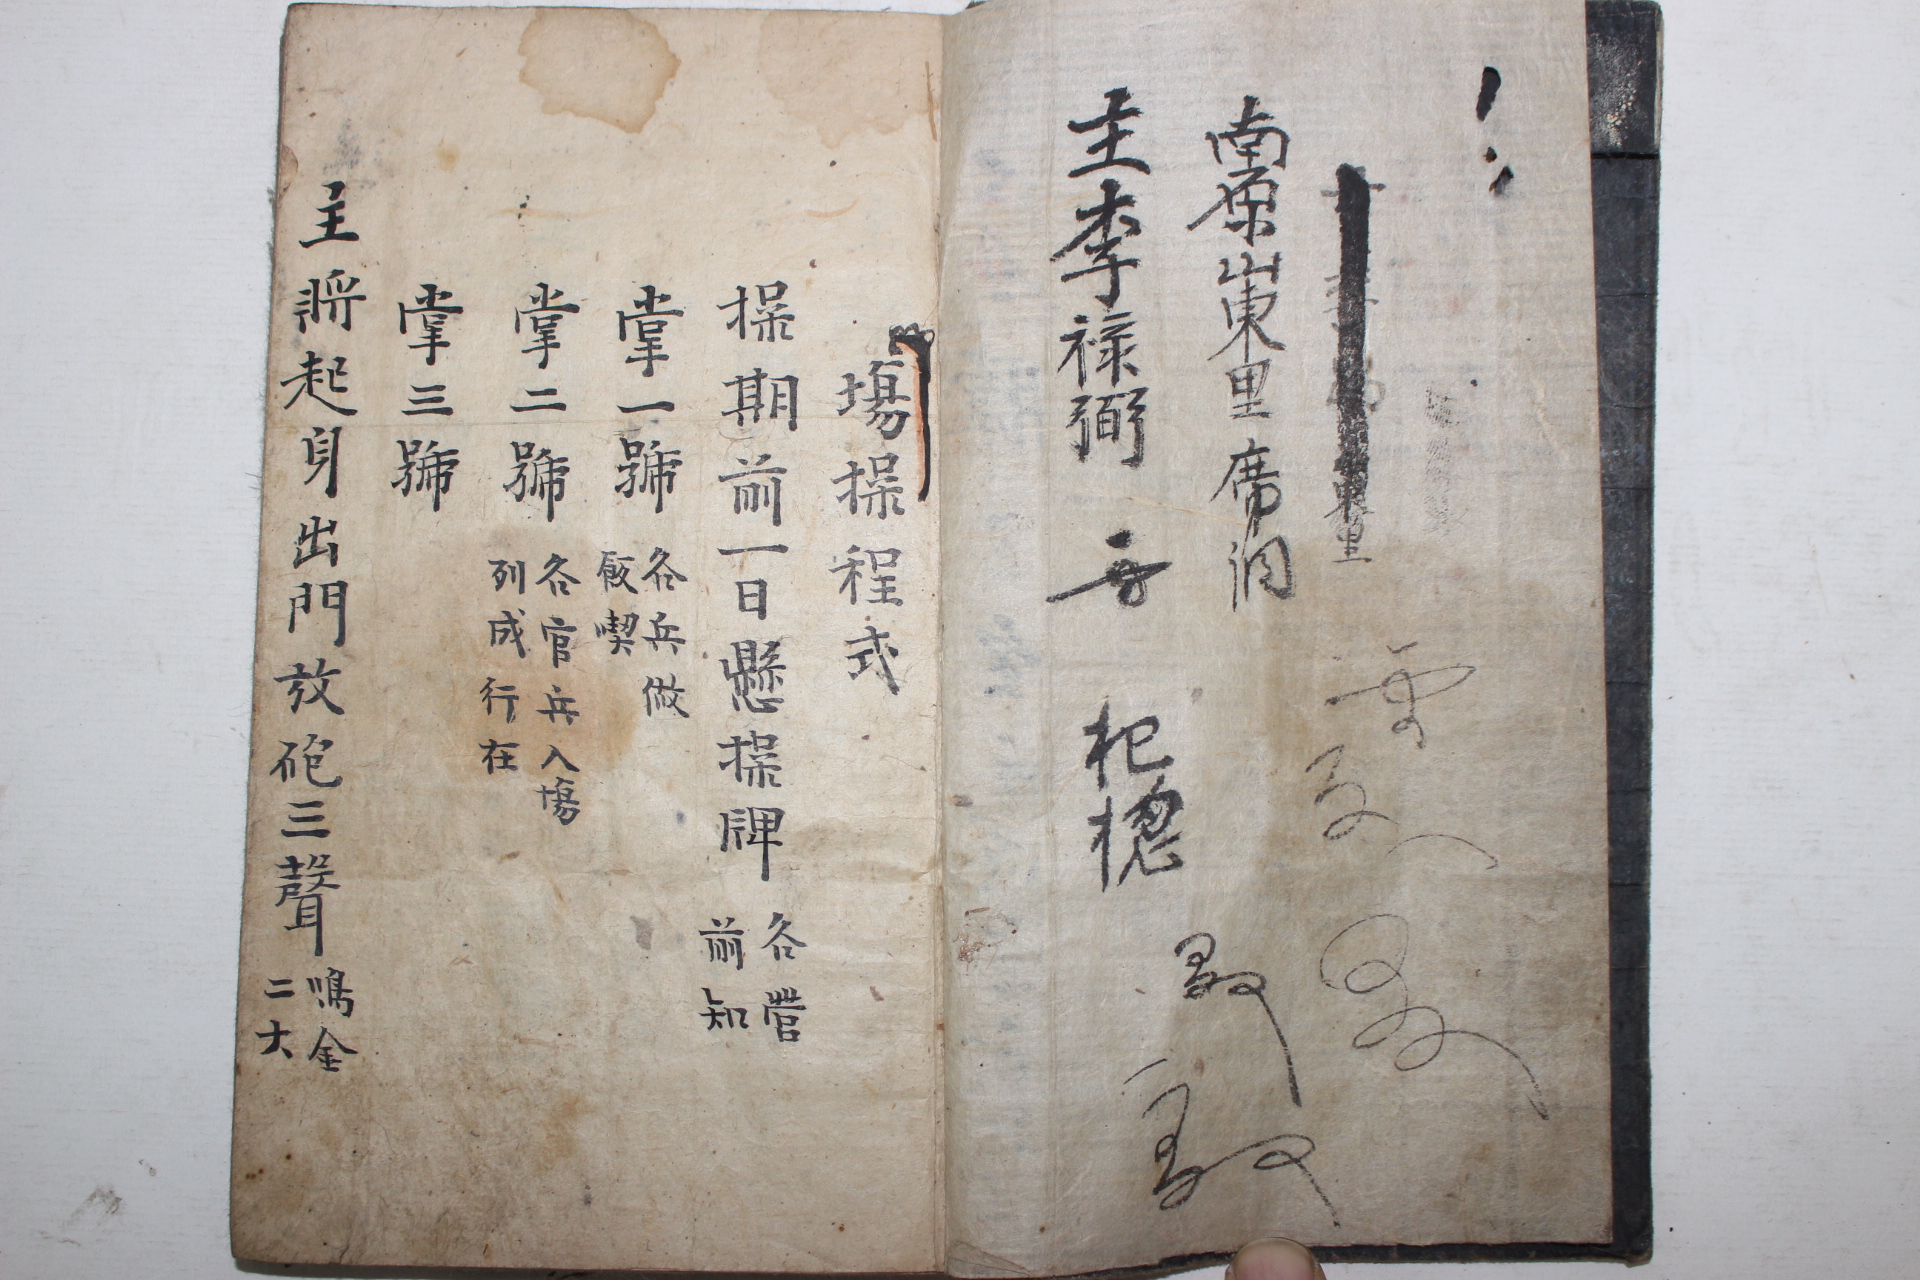 東里
南原山東里席洞
主李祿弼
杞樬
場操程式
操期前一日懸操牌 各營前知
掌一號 各兵做飯喫
掌二號 各官兵入場列成行在
掌三號
主將起身出門放砲三聲 鳴金二大